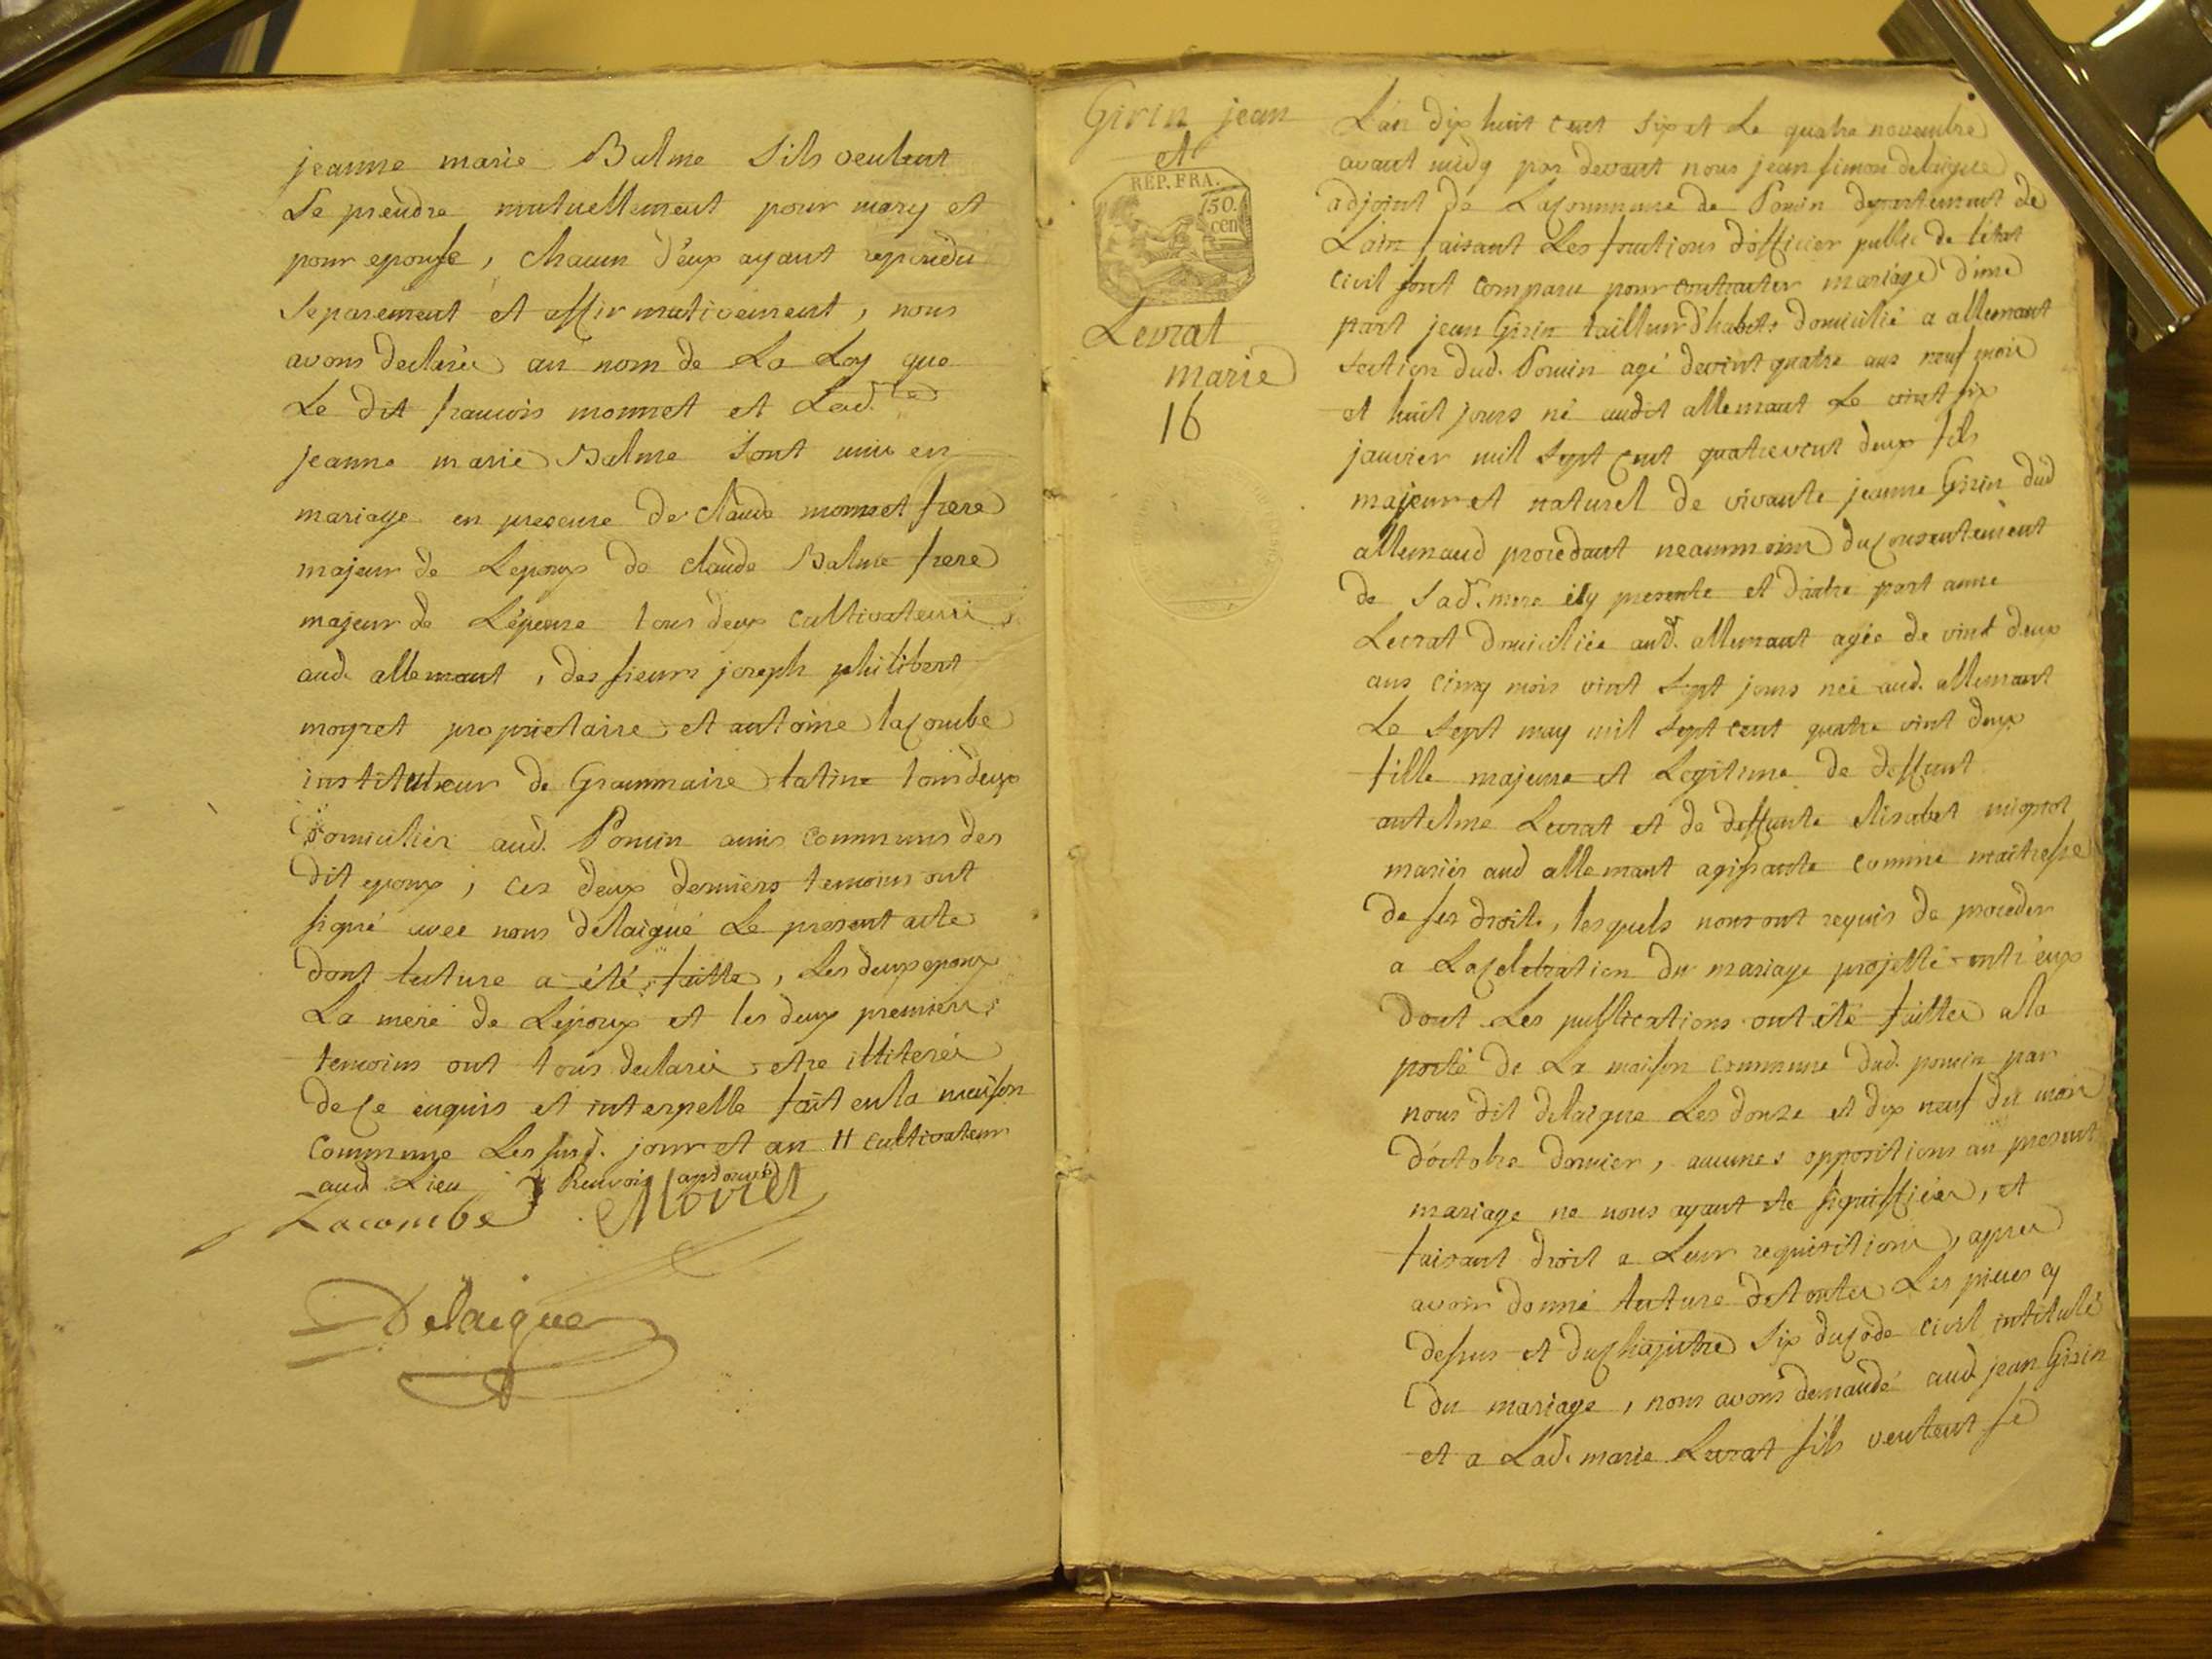 jeanne marie Balme s'ils veulent
se prendre mutuellement pour mary et
pour epouse, chacun d'eux ayant repondu
separement et affirmativement, nous
avons declaré au nom de La Loy que
Le dit francois monnet et Lad.te
jeanne marie Balme sont unis en
mariage en presence de claude monnet frere
majeur de Lepoux de claude Balme frere
majeur de L'épouse tous deux cultivateurs
aud. allemant, des sieurs joseph philibert
moyret proprietaire et antoine lacombe
instituteur de Grammaire latine tous deux
domiciliés aud. Poncin amis communs des
dit epoux, ces deux derniers temoins ont
signé avec nous delaigue Le present acte
dont lecture a été faitte, Les deux epoux
La mere de Lepoux et les deux premiers
temoins ont tous declaré etre illiterés
de ce enquis et interpellé fait en la maison
commune Les susd. jour et an # cultivateur
aud. Lieu Renvoi
Lacombe Moyret
Delaigue
Girin jean
et
REP. FRA.
50.
cen
Levrat
marie
16
L'an dix huit cent six et Le quatre novembre
avant midy par devant nous jean simon delaigue
adjoint de La commune de Poncin departement de
Lain faisant Les fonctions d'officier public de l'état
civil sont comparu pour contracter mariage d'une
part jean Girin tailleur d'habits domicilié a allemant
section dud. Poncin agé de vint quatre ans neuf mois
et huit jours né audit allemant Le vint six
janvier mil sept cent quatre vint deux fils
majeur et naturel de vivante jeanne Girin dud
allemand procedant neammoins du consentement
de sad. mere icy presente et d'autre part anne
Levrat domiciliée aud. allemant agée de vint deux
ans cinq mois vint sept jours née aud. allemant
Le sept may mil sept cent quatre vint deux
fille majeure et Legitime de deffunt
antelme Levrat et de deffunte elisabet mignot
mariés aud allemant agissante comme maitresse
de ses droits, lesquels nous ont requis de proceder
a La celebration du mariage projetté entr'eux
dont Les publications ont été faittes a la
porte de La maison commune dud. poncin par
nous dit delaigue Les douze et dix neuf du mois
d'octobre dernier, aucunes oppositions au present
mariage ne nous ayant été signiffiées, et
faisant droit a Leur requisitions, apres
avoir donné lecture de toutes Les pieces cy
dessus et du chapitre six du code civil intitulé
du mariage, nous avons demandé aud. jean Girin
et a Lad. marie Levrat s'ils veulent se